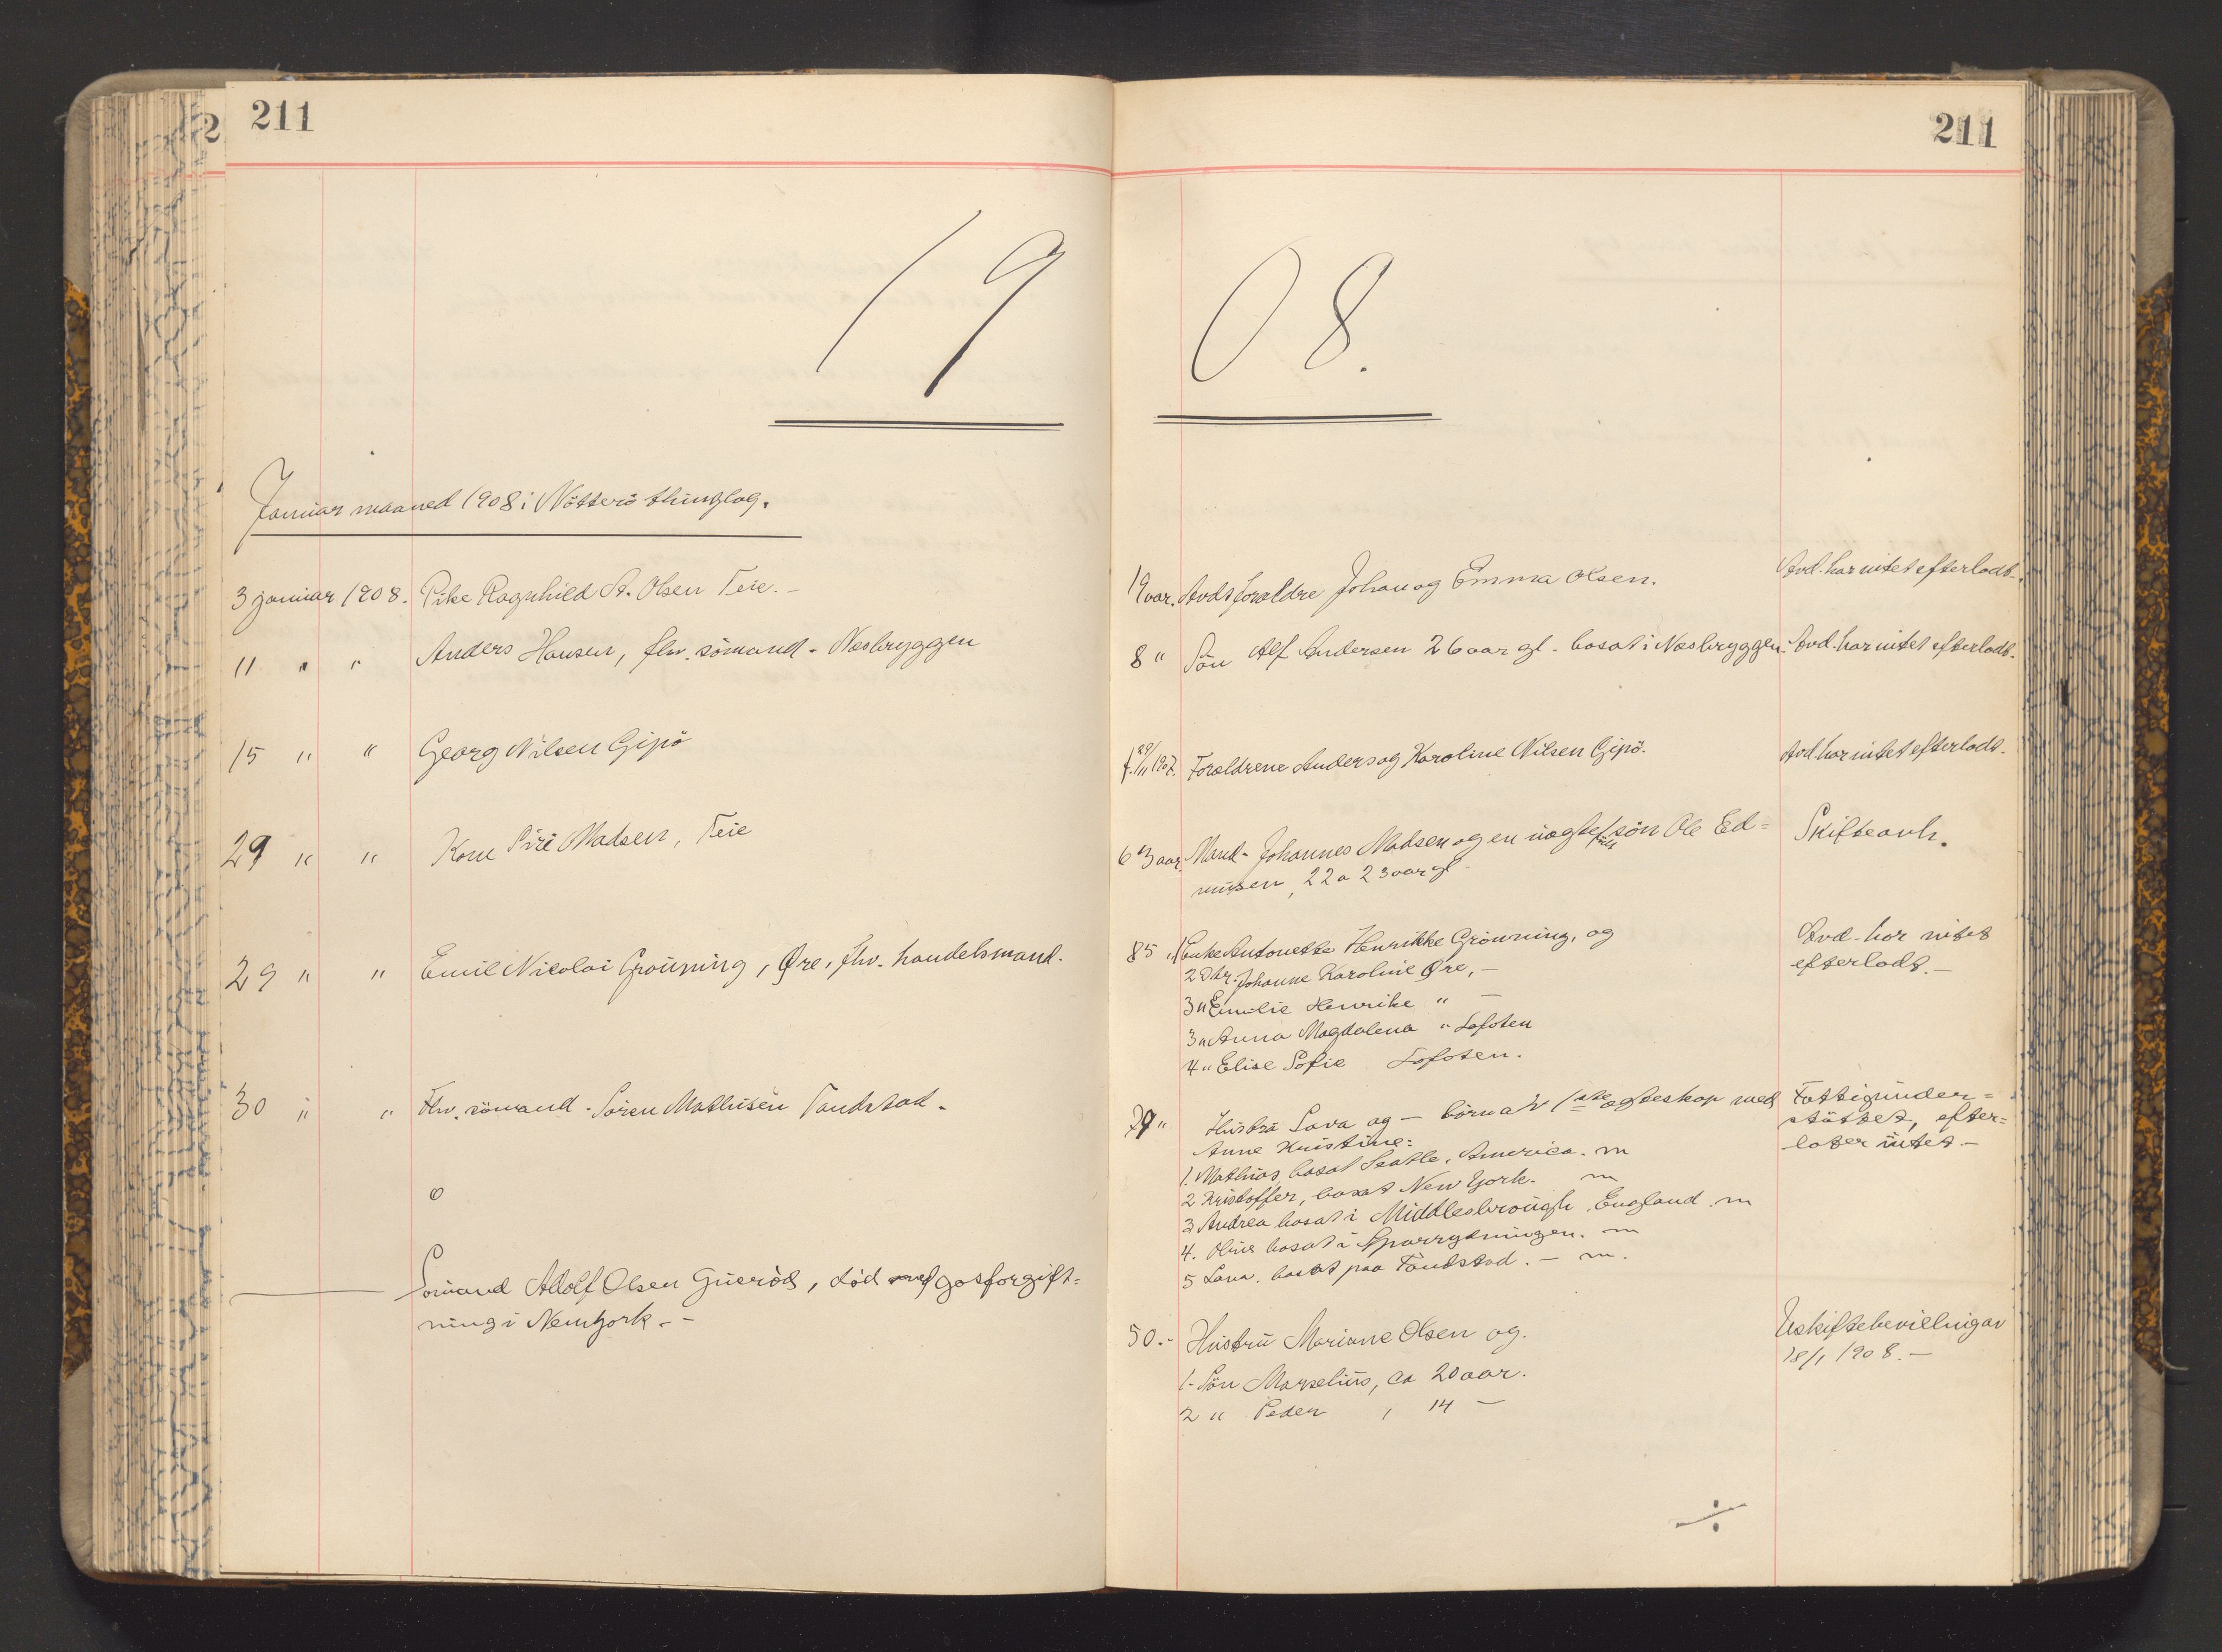 211
211
19 08.
Januar maaned 1908 i Nötterö thinglag.
3 januar 1908. Pike Ragnhild Olsen Teie. -
19 aar. Avds forældre Johan og Emma Olsen.
Avd. har intet efterladt.
11 " " Anders Hansen, fhv. sömand - Næsbryggen
8 " Sön Alf Andersen 26 aar gl. bosat i Næsbryggen.
Avd. har intet efterladt.
15 " " Georg Nilsen Gipö
f. 29/11 1907. Forældrene Anders og Karoline Nilsen Gipö.
Avd. har intet efterladt.
29 " " Kone Siri Madsen, Teie
63 aar. Mand - Johannes Madsen og en uægte sön Ole Ed=
mundsen, 22 a 23 aar gl
Skifteavh.
29 " " Emil Nicolai Grönning, Øre, fhv. handelsmand.
85 " 1 Enke Antonette Henrikke Grönning, og
2 Dtr. Johanne Karoline Øre, -
3 " Emilie Henrike " -
3 " Anna Magdalena " Lofoten
4 " Elise Sofie Lofoten.
Avd. har intet
efterladt. -
30 " " Fhv. sömand - Sören Mathisen Tandstad -
79 " Hustru Lava og - börn av 1ste egteskap med
Anne Kristine:
1. Mathias, bosat Seatle, America. m
2 Kristoffer, bosat New York. m
3 Andrea bosat i Middlesbrough, England. m
4. Oline bosat i . m
5 Lava, bosat paa Tandstad. - m.
Fattigunder=
stöttet, efter=
later intet -
Sömand Adolf Olsen Gueröd, död gasforgift=
ning i Newyork. -
50. - Hustru Mariane Olsen og.
1 - Sön Marselius, ca 20 aar.
2 " Peder , 14 -
Uskiftebevilling av
18/1 1908. -